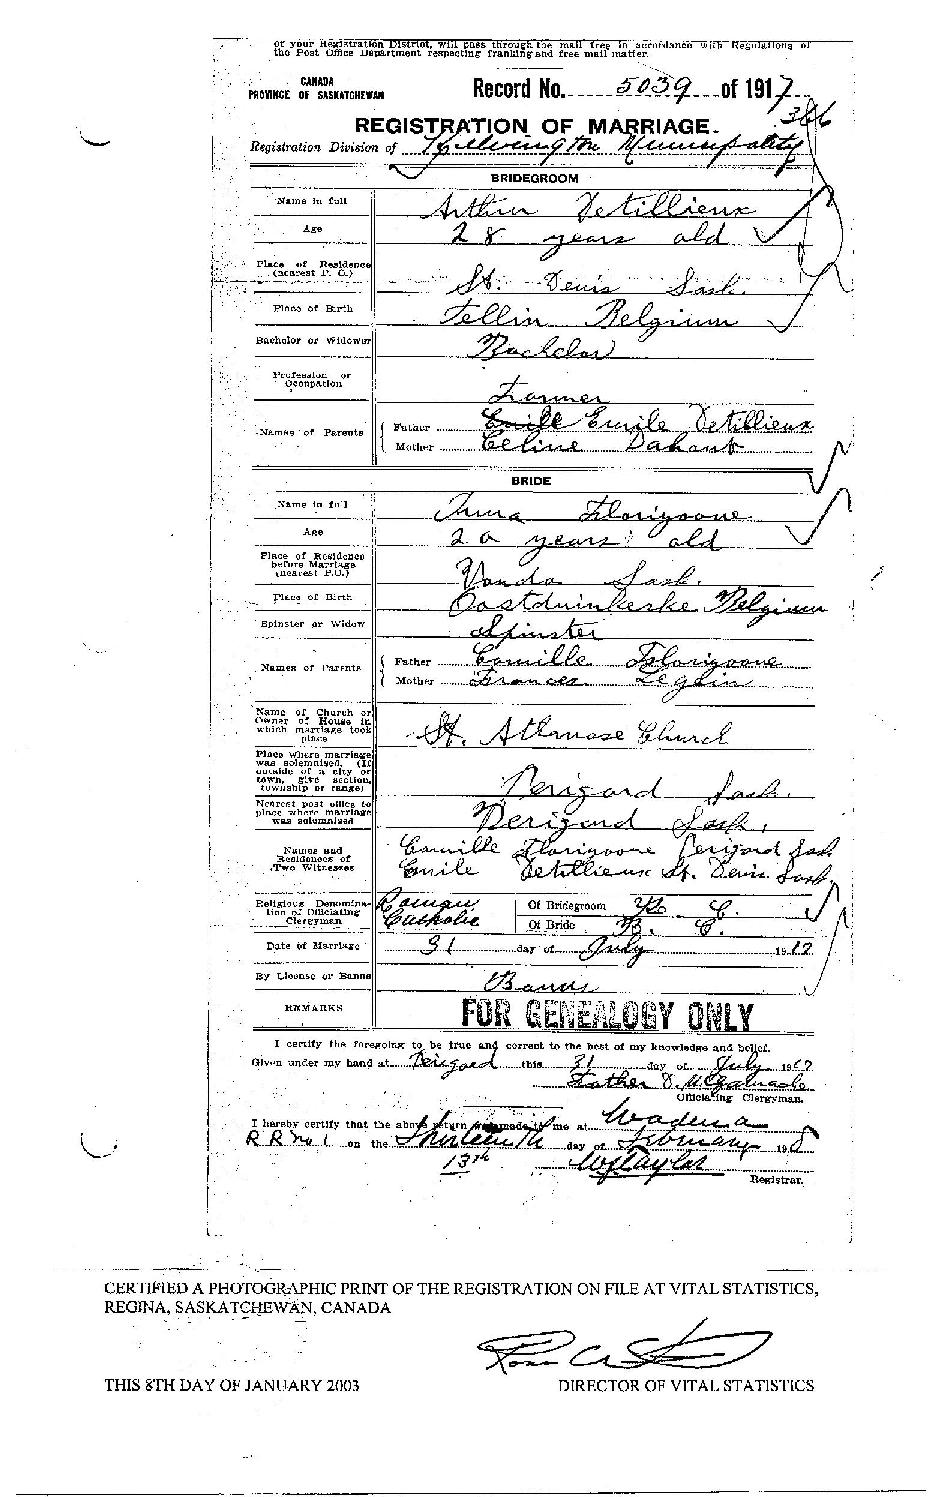 of your Registration District, will pass through the mail free in accordance with Regulations of
the Post Office Department respecting franking and free mail matter.
CANADA
PROVINCE OF SASKATCHEWAN
Record No. 5039 of 1917
366
REGISTRATION OF MARRIAGE.
Registration Division of Municipality
BRIDEGROOM
Name in full Arthur Detillieux
Age 28 years old
Place of Residence (nearest P. O.) St. Denis Sask.
Place of Birth Tellin Belgium
Bachelor or Widower Bachelor
Profession or Occupation Farmer
Names of Parents
Father Emile Detillieux
Mother Celine Dahant
BRIDE
Name in full Anna Florizoone
Age 20 years old
Place of Residence before Marriage (nearest P.O.) Vonda Sask.
Place of Birth Oostduinkerke Belgium
Spinster or Widow Spinster
Names of Parents
Father Camille Florizoone
Mother Frances Legein
Name of Church or Owner of House in which marriage took place St. Athanase Church
Place where marriage was solemnised, (If outside of a city or town, give section, township or range) Perigord Sask.
Nearest post office to place where marriage was solemnised Perigord Sask.
Names and Residences of Two Witnesses
Camille Florizoone Perigord Sask
Emile Detillieux St. Denis Sask.
Religious Denomination of Officiating Clergyman Roman Catholic
Of Bridegroom R. C.
Of Bride R. C.
Date of Marriage 31 day of July 1917
By License or Banns Banns
REMARKS
FOR GENEALOGY ONLY
I certify the foregoing to be true and correct to the best of my knowledge and belief.
Given under my hand at Perigord this 31 day of July 1917
Father
Officiating Clergyman.
I hereby certify that the above return was made to me at Wadena
R R no 1 on the Thirteenth day of February 1918
13th
W J Taylor
Registrar.
CERTIFIED A PHOTOGRAPHIC PRINT OF THE REGISTRATION ON FILE AT VITAL STATISTICS,
REGINA, SASKATCHEWAN, CANADA
THIS 8TH DAY OF JANUARY 2003
DIRECTOR OF VITAL STATISTICS